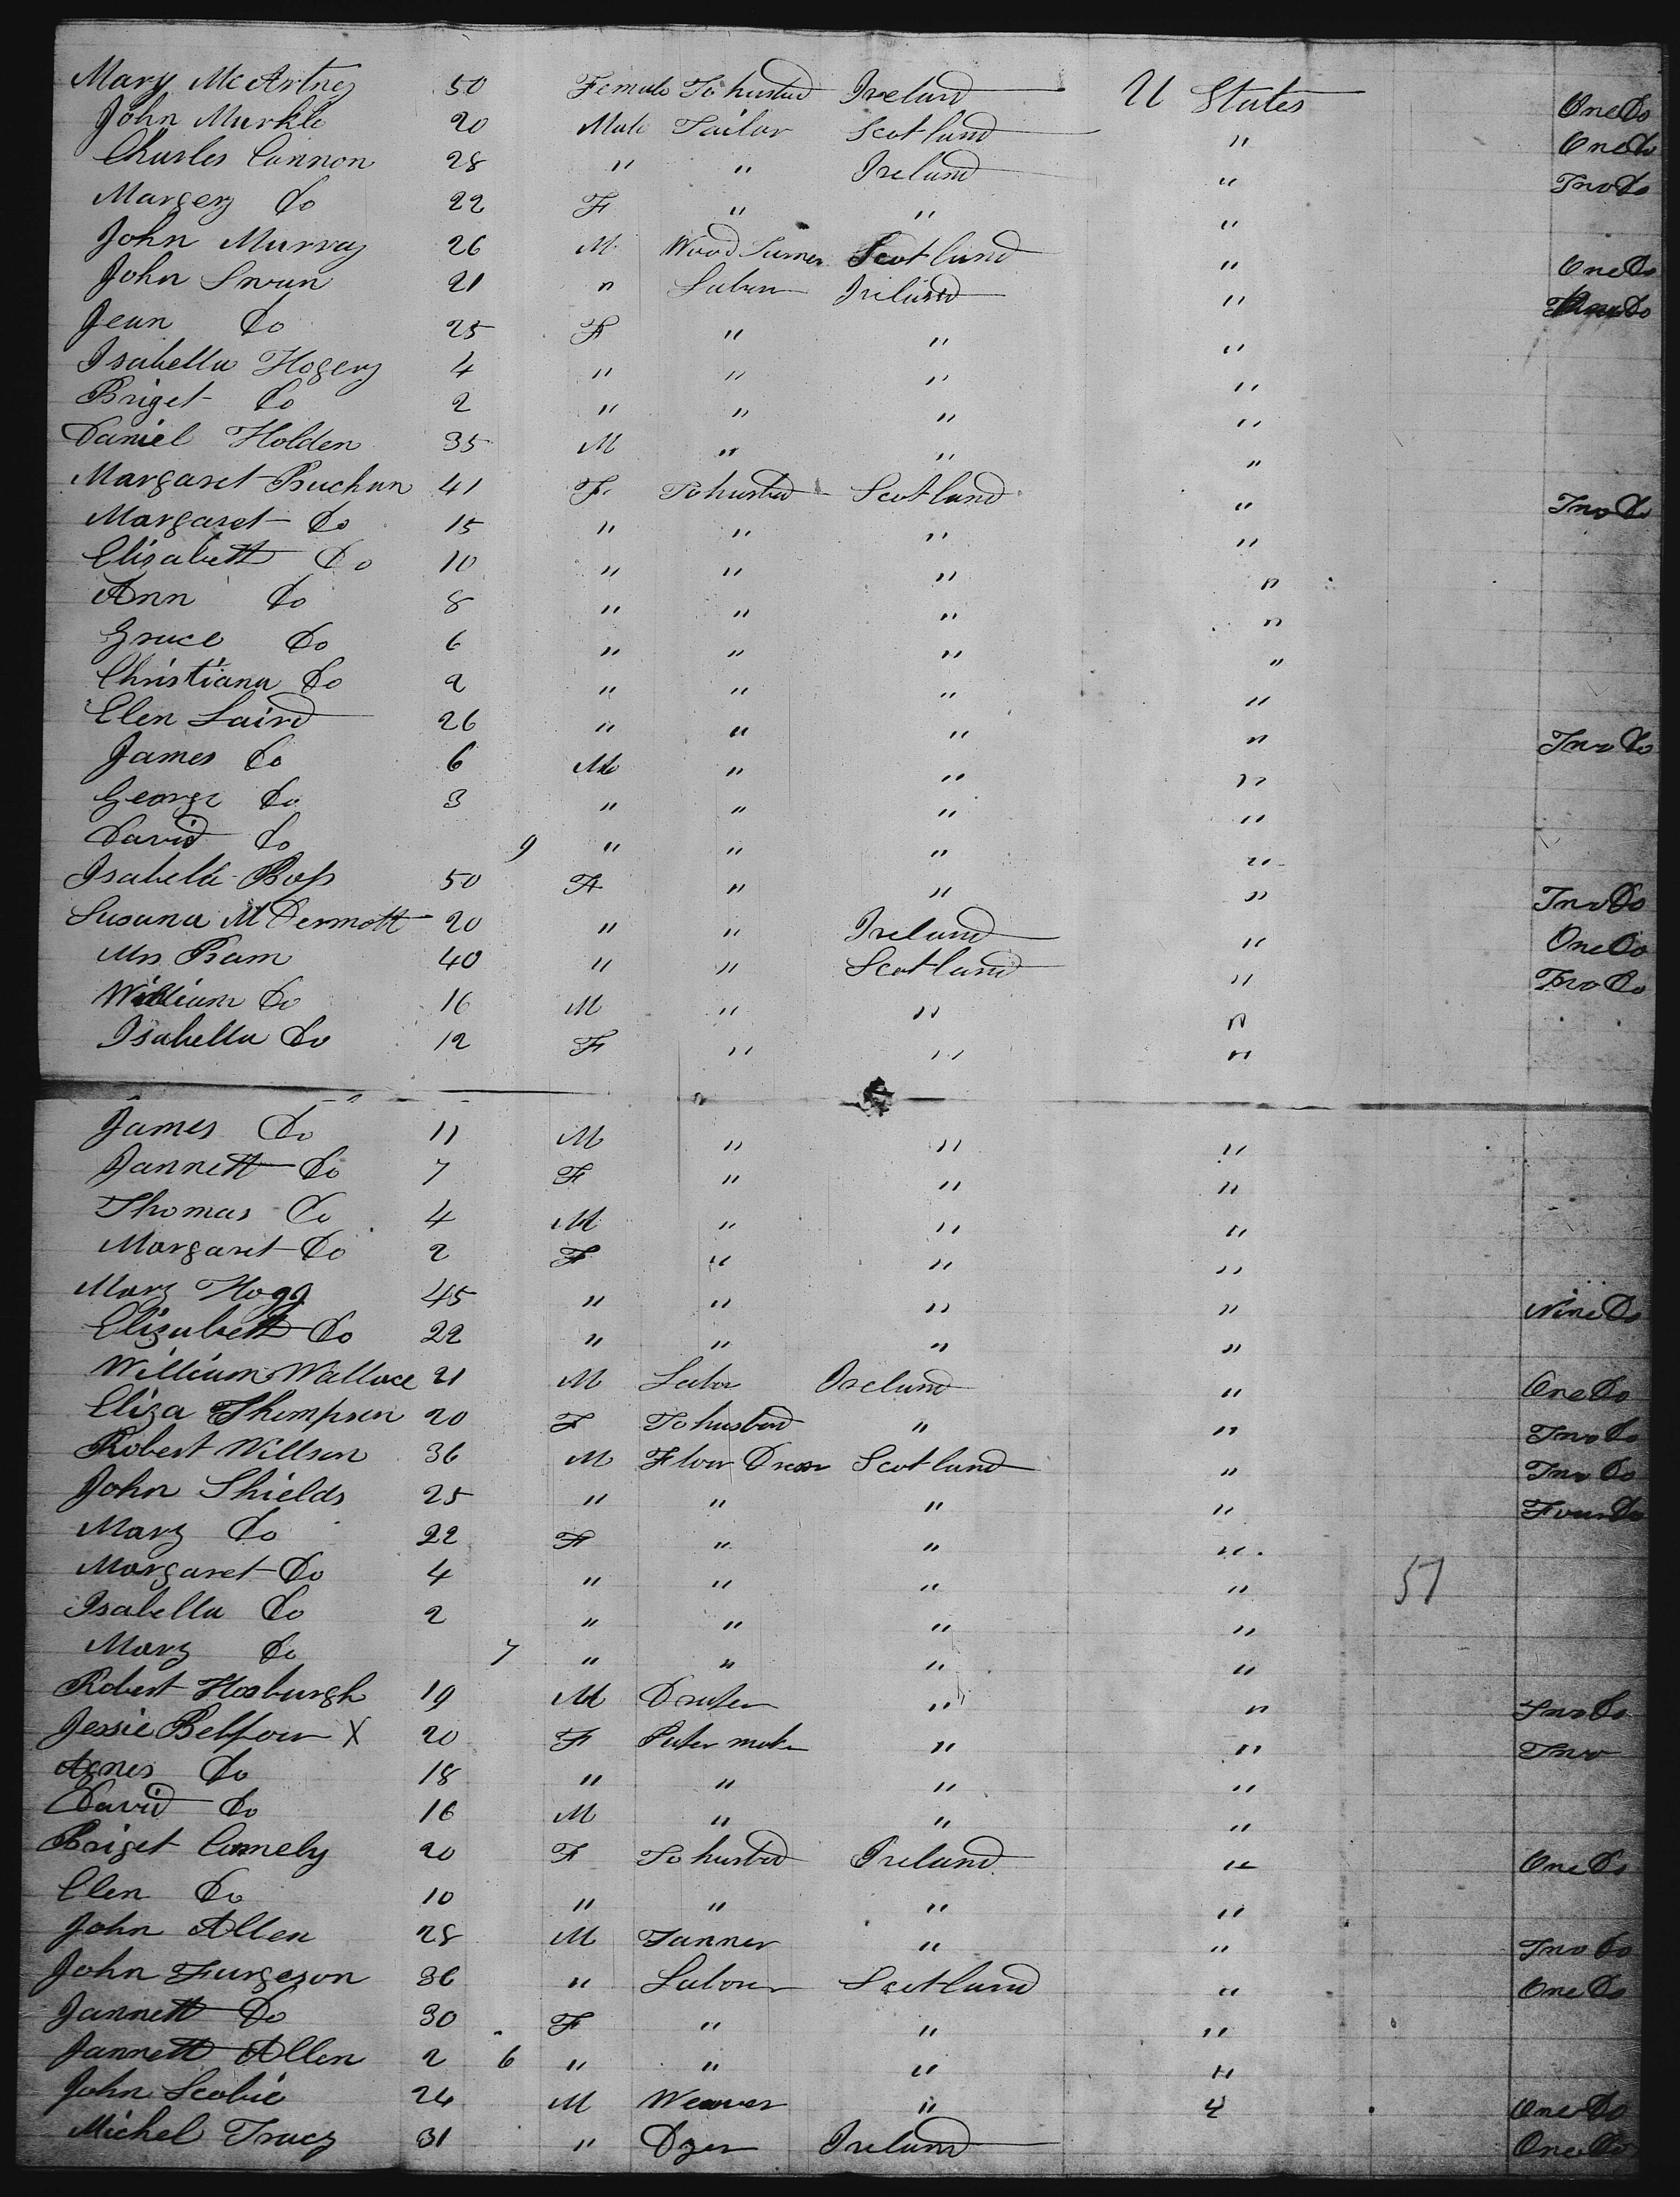 Mary McArtney 50 Female To husbd Ireland U States One Do
John Murkle 20 Male Tailor Scotland " One Do
Charles Cannon 28 " " Ireland " Two Do
Margery Do 22 F " " "
John Murray 26 M Wood Turner Scotland " One Do
John Swan 21 " Labourer Ireland " Do
Jean Do 25 F " " "
Isabella Hogery 4 " " " "
Briget Do 2 " " " "
Daniel Holden 35 M " " "
Margaret Buchan 41 F. To husbd Scotland " Two Do
Margaret Do 15 " " " "
Elisabett Do 10 " " " "
Ann Do 8 " " " "
Grace Do 6 " " " "
Christiana Do 2 " " " "
Elen Laird 26 " " " " Two Do
James Do 6 M " " "
George Do 3 " " " "
David Do 9 " " " "
Isabella Boss 50 F " " " Two Do
Susana McDermott 20 " " Ireland " One Do
Mrs Bam 40 " " Scotland " Two Do
William Do 16 M " " "
Isabella Do 12 F " " "
James Do 11 M " " "
Jannett Do 7 F " " "
Thomas Do 4 M " " "
Margaret Do 2 F " " "
Mary Hogg 45 " " " " Nine Do
Elizabett Do 22 " " " "
William Wallace 21 M Labor Ireland " One Do
Eliza Thompson 20 F To husbad " " Two Do
Robert Willson 36 M Flour Dresr Scotland " Two Do
John Shields 25 " " " " Four Do
Mary Do 22 F " " "
Margaret Do 4 " " " " 57
Isabella Do 2 " " " "
Mary Do 7 " " " "
Robert Hosburgh 19 M Draper " " Two Do
Jessie Belfour X 20 F Paper maker " " Two
Agnes Do 18 " " " "
David Do 16 M " " "
Briget Connely 20 F To husbd Ireland " One Do
Elen Do 10 " " " "
John Allen 28 M Tanner " " Two Do
John Furgeson 36 " Laborer Scotland " One Do
Jannett Do 30 F " " "
Jannett Allen 2 6 " " " "
John Scobie 24 M Weaver " " One Do
Michel Tracy 31 " Dyer Ireland One Do